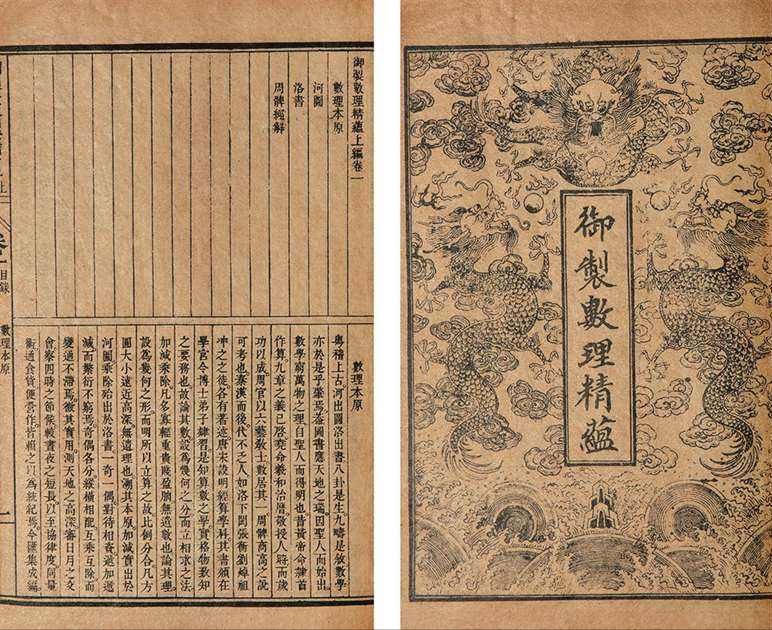 御製數理精蘊
御製數理精蘊上編卷一
數理本原
河圖
洛書
周髀經解
數理本原
粵稽上古河出圖洛出書八卦是生九疇是敘數學
亦於是乎肇焉蓋圖書應天地之瑞因聖人而始出
數學窮萬物之理自聖人而得明也昔黃帝命隸首
作算九章之義已啟堯命羲和治曆敬授人時而歲
功以成周官以六藝教士數居其一周髀商高之說
可考也秦漢而後代不乏人如洛下閎張衡劉焯祖
冲之之徒各有著述唐宋設明經算學科其書頒在
學宮令博士弟子肄習是知算數之學實格物致知
之要務也故論其數設為幾何之分而立相求之法
加減乘除凡多寡輕重貴賤盈朒無遺數也論其理
設為幾何之形而明所以立算之故比例分合凡方
圓大小遠近高深無遺理也溯其本原加減實出於
河圖乘除殆出於洛書一奇一偶對待相資遞加遞
減而繁衍不窮焉奇偶各分縱橫相配互乘互除而
變通不滯焉徵其實用測天地之高深審日月之交
會察四時之節候較晝夜之短長以至協律度同量
衡通食貨便營作皆賴之以為統紀焉今匯集成編
卷一目錄
數理本原
一